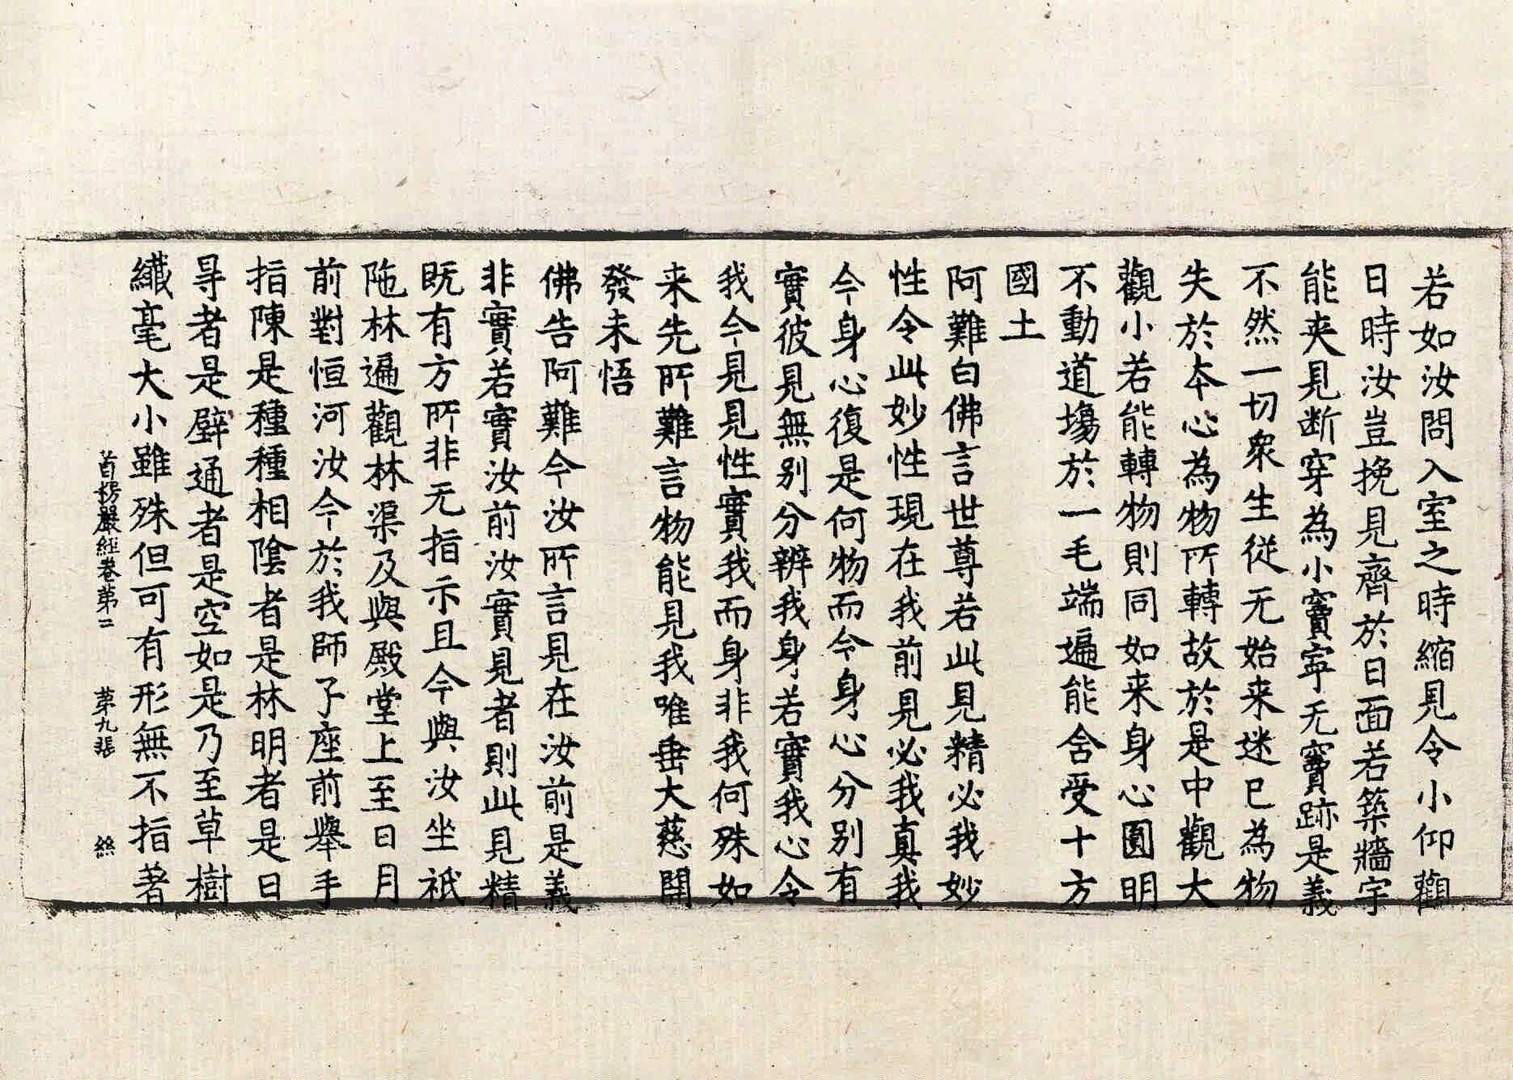 若如汝問入室之時縮見令小仰觀
日時汝豈挽見齊於日面若築牆宇
能夹見断穿為小竇寧无竇跡是義
不然一切衆生従无始来迷已為物
失於夲心為物所轉故於是中觀大
觀小若能轉物則同如来身心圓明
不動道塲於一毛端遍能含受十方
國土
阿難白佛言世尊若此見精必我妙
性令此妙性現在我前見必我真我
今身心復是何物而今身心分别有
實彼見無别分辨我身若實我心令
我今見見性實我而身非我何殊如
来先所難言物能見我唯垂大慈開
發未悟
佛告阿難今汝所言見在汝前是義
非實若實汝前汝實見者則此見精
既有方所非无指示且今與汝坐祇
陁林遍觀林渠及與殿堂上至日月
前對恒河汝今於我師子座前舉手
指陳是種種相陰者是林明者是日
㝵者是壁通者是空如是乃至草樹
纎毫大小雖殊但可有形無不指著
首楞嚴經卷第二 第九張 絲